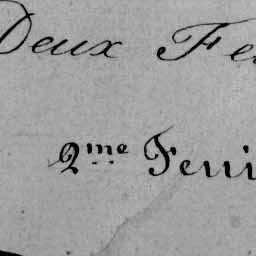 Deux Fe
2me Feui